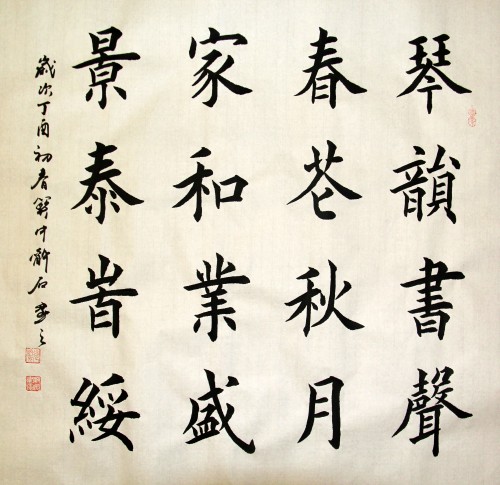 琴韻書聲
春芲秋月
家和業盛
景泰旹綏
歲次丁酉初春關中靳石書之